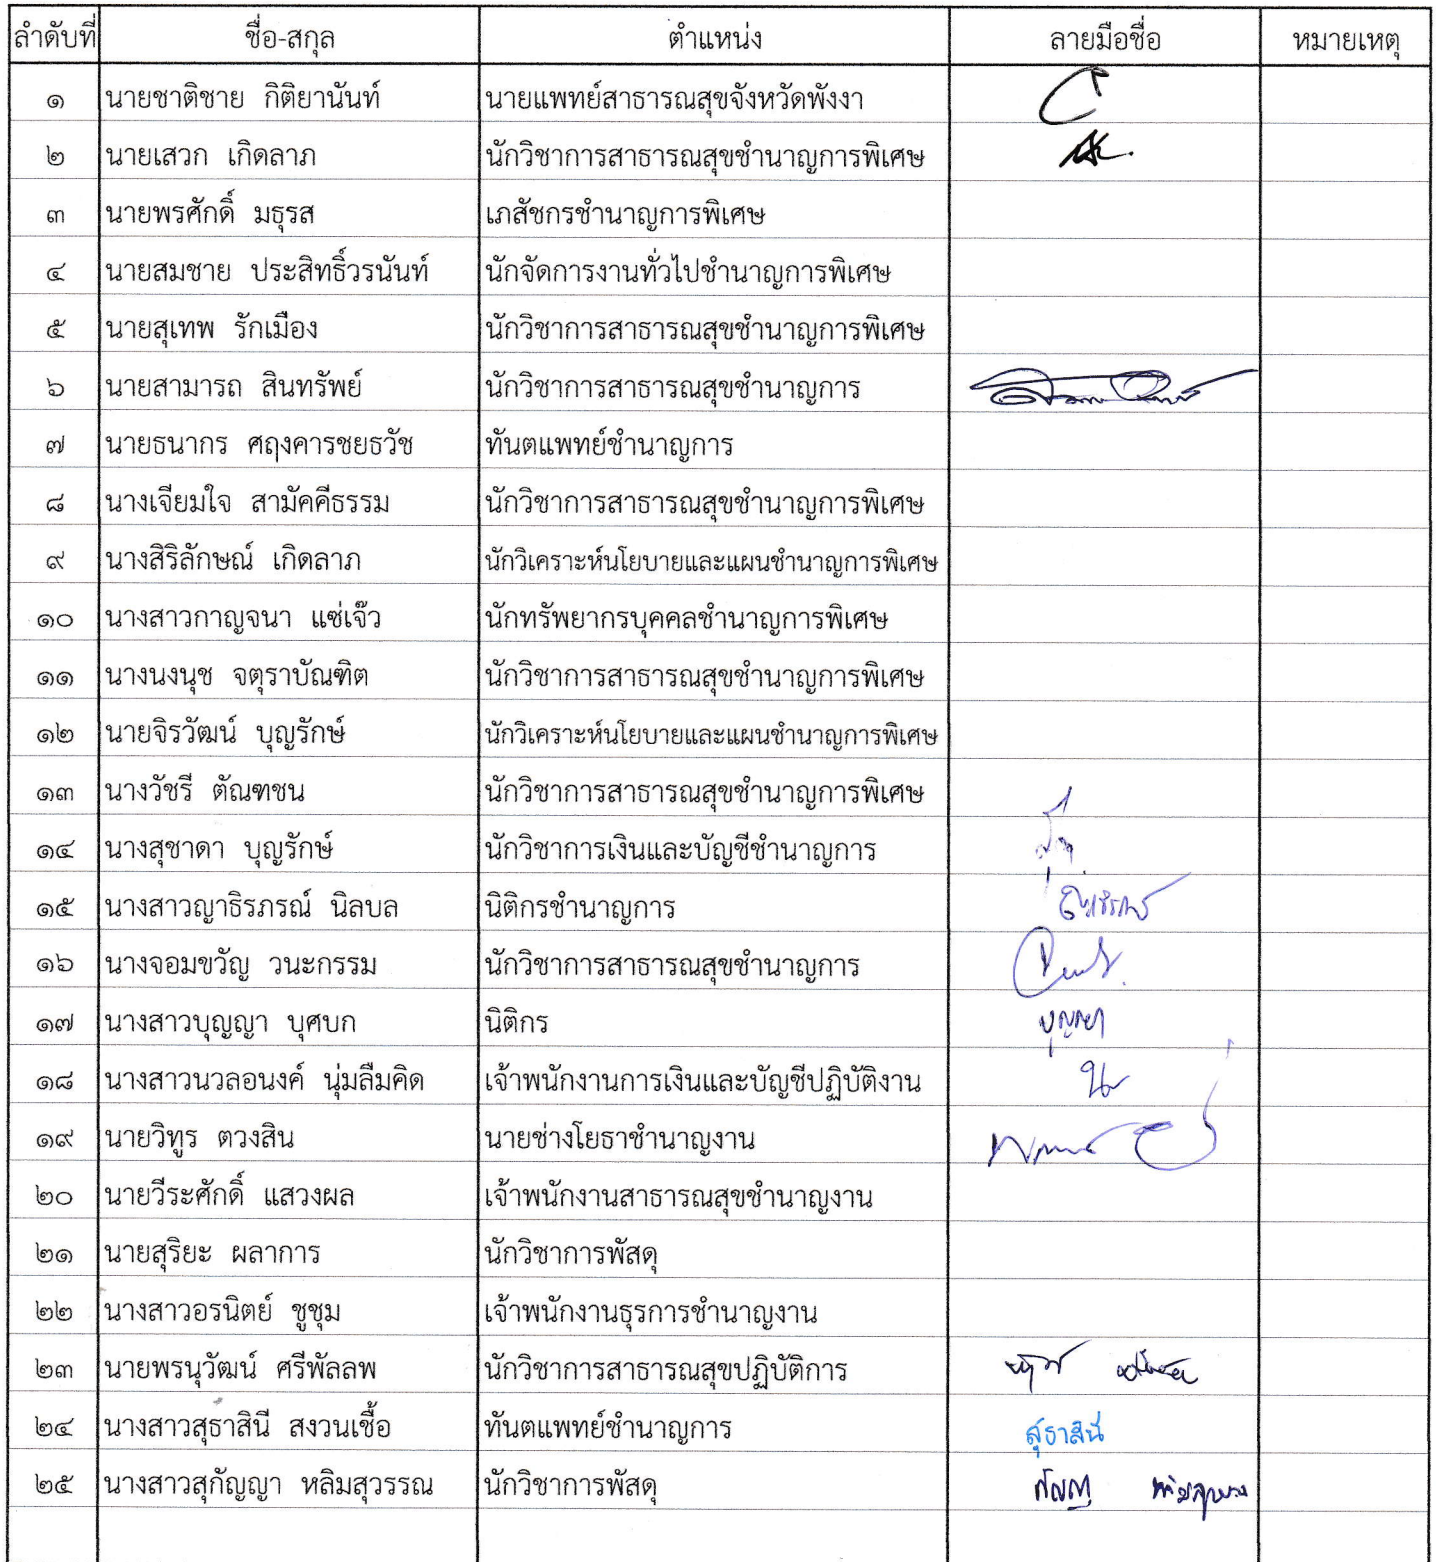 ลำดับที่ ชื่อ-สกุล ตำแหน่ง ลายมือชื่อ หมายเหตุ
๑ นายชาติชาย กิติยานันท์ นายแพทย์สาธารณสุขจังหวัดพังงา
๒ นายเสวก เกิดลาภ นักวิชาการสาธารณสุขชำนาญการพิเศษ
๓ นายพรศักดิ์ มธุรส เภสัชกรชำนาญการพิเศษ
๔ นายสมชาย ประสิทธิ์วรนันท์ นักจัดการงานทั่วไปชำนาญการพิเศษ
๕ นายสุเทพ รักเมือง นักวิชาการสาธารณสุขชำนาญการพิเศษ
๖ นายสามารถ สินทรัพย์ นักวิชาการสาธารณสุขชำนาญการ
๗ นายธนากร ศฤงคารชยธวัช ทันตแพทย์ชำนาญการ
๘ นางเจียมใจ สามัคคีธรรม นักวิชาการสาธารณสุขชำนาญการพิเศษ
๙ นางสิริลักษณ์ เกิดลาภ นักวิเคราะห์นโยบายและแผนชำนาญการพิเศษ
๑๐ นางสาวกาญจนา แซ่เจ๊ว นักทรัพยากรบุคคลชำนาญการพิเศษ
๑๑ นางนงนุช จตุราบัณฑิต นักวิชาการสาธารณสุขชำนาญการพิเศษ
๑๒ นายจิรวัฒน์ บุญรักษ์ นักวิเคราะห์นโยบายและแผนชำนาญการพิเศษ
๑๓ นางวัชรี ตัณฑชน นักวิชาการสาธารณสุขชำนาญการพิเศษ
๑๔ นางสุชาดา บุญรักษ์ นักวิชาการเงินและบัญชีชำนาญการ
๑๕ นางสาวญาธิรภรณ์ นิลบล นิติกรชำนาญการ
๑๖ นางจอมขวัญ วนะกรรม นักวิชาการสาธารณสุขชำนาญการ
๑๗ นางสาวบุญญา บุศบก นิติกร บุญญา
๑๘ นางสาวนวลอนงค์ นุ่มลืมคิด เจ้าพนักงานการเงินและบัญชีปฏิบัติงาน
๑๙ นายวิทูร ตวงสิน นายช่างโยธาชำนาญงาน
๒๐ นายวีระศักดิ์ แสวงผล เจ้าพนักงานสาธารณสุขชำนาญงาน
๒๑ นายสุริยะ ผลาการ นักวิชาการพัสดุ
๒๒ นางสาวอรนิตย์ ชูชุม เจ้าพนักงานธุรการชำนาญงาน
๒๓ นายพรนุวัฒน์ ศรีพัลลพ นักวิชาการสาธารณสุขปฏิบัติการ
๒๔ นางสาวสุธาสินี สงวนเชื้อ ทันตแพทย์ชำนาญการ สุธาสินี
๒๕ นางสาวสุกัญญา หลิมสุวรรณ นักวิชาการพัสดุ